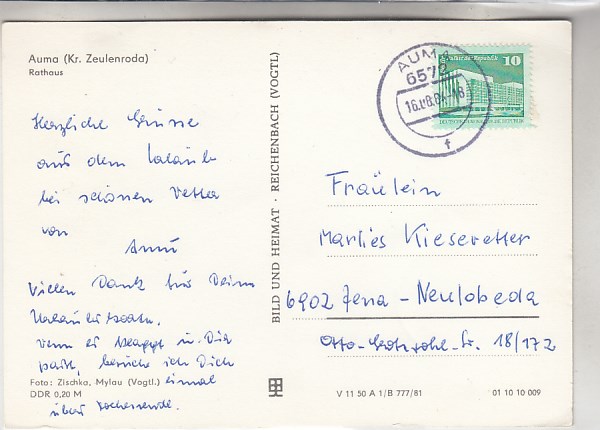 Auma (Kr. Zeulenroda)
Rathaus
Herzliche Grüsse
aus dem Urlaub
bei schönen Wetter
von
Anni
Vielen Dank für Deine
Urlaubskarte,
wenn es klappt u. Dir
paßt, besuche ich Dich
einmal
über Wochenende.
Foto: Zischka, Mylau (Vogtl.)
DDR 0,20 M
BILD UND HEIMAT · REICHENBACH (VOGTL)
AUMA
6572
16.08.84-18
f
10
Palast der Republik
DEUTSCHE DEMOKRATISCHE REPUBLIK
Fräulein
Marlies Kieseretter
6902 Jena - Neulobeda
Otto-Grotewohl-Str. 18/172
V 11 50 A 1/B 777/81
01 10 10 009